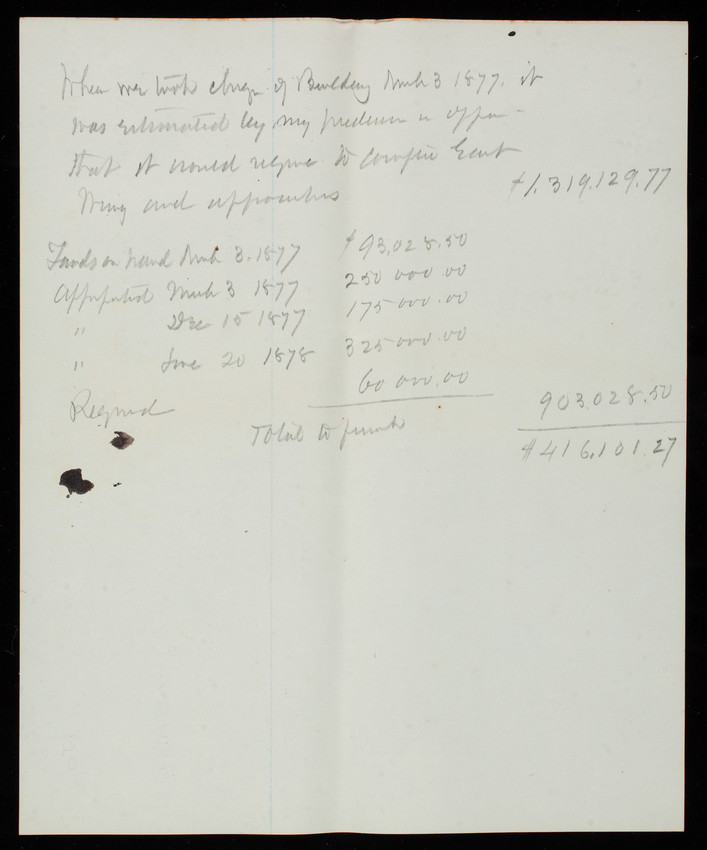 When we took charge of Building March 3 1877. it
was estimated by my predecessor in office
that it would require to complete East
Wing and approaches $1.319,129.77
Funds on hand March 3. 1877 $93,028.50
Appropriated March 3 1877 250 000.00
" Dec 15 1877 175 000.00
" June 20 1878 325 000.00
60 000.00
Required 903,028.50
Total to finish $416,101.27